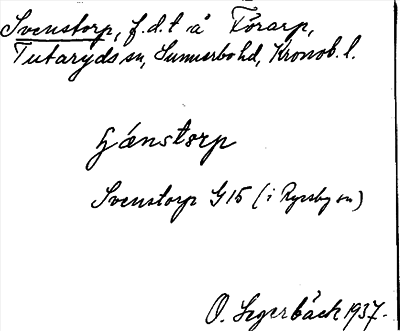 Svenstorp, f.d.t å Förarp,
Tutaryds sn, Sunnerbo hd, Kronob. l.
Svenstorp G 15 (i Ryssby sn)
O. Segerbäck 1937.